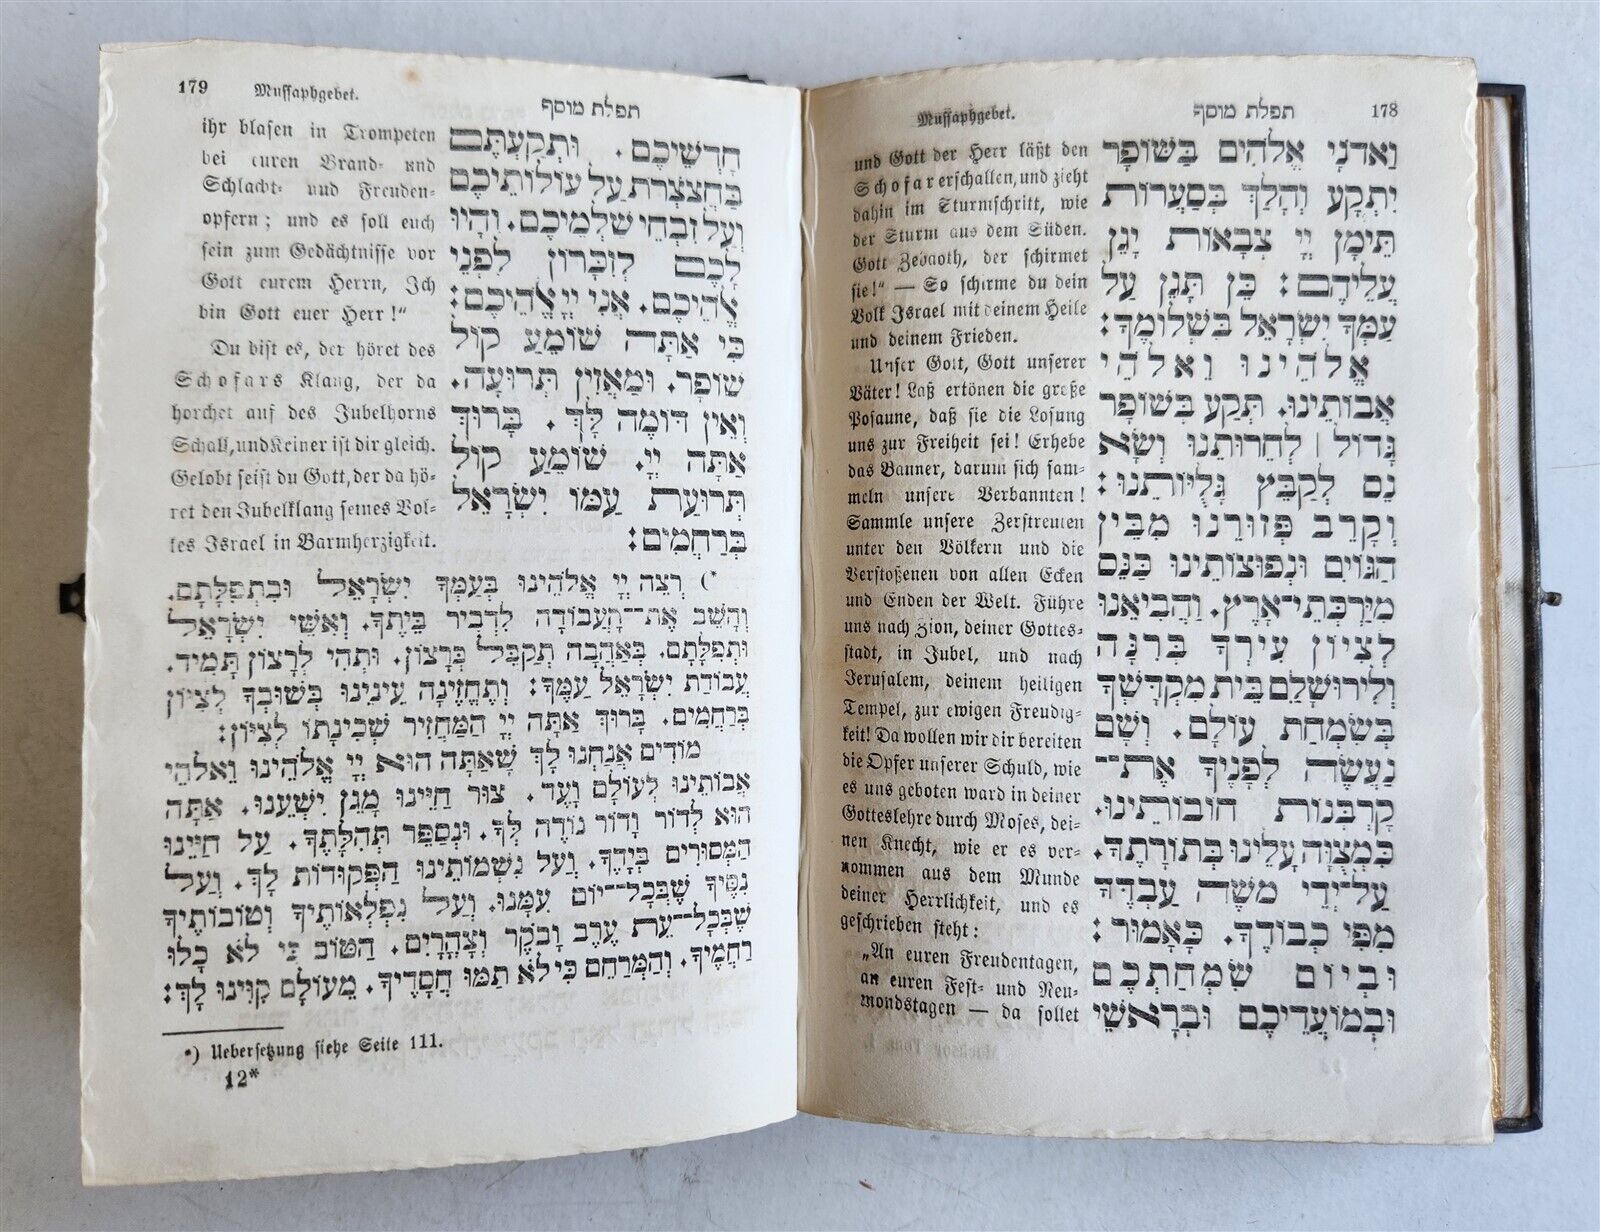 178
תפלת מוסף
Mussaphgebet.
וַאדֹנָי אֱלֹהִים בַּשּׁוֹפָר
יִתְקָע וְהָלַךְ בְּסַעֲרוֹת
תֵּימָן יְיָ צְבָאוֹת יָגֵן
עֲלֵיהֶם: כֵּן תָּגֵן עַל
עַמְּךָ יִשְׂרָאֵל בִּשְׁלוֹמֶךָ:
אֱלֹהֵינוּ וֵאלֹהֵי
אֲבוֹתֵינוּ. תְּקַע בְּשׁוֹפָר
גָּדוֹל | לְחֵרוּתֵנוּ וְשָׂא
נֵס לְקַבֵּץ גָּלֻיּוֹתֵנוּ:
וְקָרֵב פְּזוּרֵנוּ מִבֵּין
הַגּוֹיִם וּנְפוּצוֹתֵינוּ כַּנֵּס
מִיַּרְכְּתֵי־אָרֶץ. וַהֲבִיאֵנוּ
לְצִיּוֹן עִירְךָ בְּרִנָּה
וְלִירוּשָׁלַיִם בֵּית מִקְדָּשְׁךָ
בְּשִׂמְחַת עוֹלָם. וְשָׁם
נַעֲשֶׂה לְפָנֶיךָ אֶת־
קָרְבְּנוֹת חוֹבוֹתֵינוּ.
כִּמְצֻוָּה עָלֵינוּ בְּתוֹרָתֶךָ.
עַל־יְדֵי מֹשֶׁה עַבְדֶּךָ
מִפִּי כְבוֹדֶךָ. כָּאָמוּר:
וּבְיוֹם שִׂמְחַתְכֶם
וּבְמוֹעֲדֵיכֶם וּבְרָאשֵׁי
und Gott der Herr läßt den
Schofar erschallen, und zieht
dahin im Sturmschritt, wie
der Sturm aus dem Süden.
Gott Zebaoth, der schirmet
sie!“ — So schirme du dein
Volk Israel mit deinem Heile
und deinem Frieden.
Unser Gott, Gott unserer
Väter! Laß ertönen die große
Posaune, daß sie die Losung
uns zur Freiheit sei! Erhebe
das Banner, darum sich sam-
meln unsere Verbannten!
Sammle unsere Zerstreuten
unter den Völkern und die
Verstoßenen von allen Ecken
und Enden der Welt. Führe
uns nach Zion, deiner Gottes-
stadt, in Jubel, und nach
Jerusalem, deinem heiligen
Tempel, zur ewigen Freudig-
keit! Da wollen wir dir bereiten
die Opfer unserer Schuld, wie
es uns geboten ward in deiner
Gotteslehre durch Moses, dei-
nen Knecht, wie er es ver-
nommen aus dem Munde
deiner Herrlichkeit, und es
geschrieben steht:
„An euren Freudentagen,
an euren Fest- und Neu-
mondstagen — da sollet
179
Mussaphgebet.
תפלת מוסף
חָדְשֵׁיכֶם. וּתְקַעְתֶּם
בַּחֲצֹצְרֹת עַל עוֹלוֹתֵיכֶם
וְעַל זִבְחֵי שַׁלְמֵיכֶם. וְהָיוּ
לָכֶם לְזִכָּרוֹן לִפְנֵי
אֱלֹהֵיכֶם. אֲנִי יְיָ אֱלֹהֵיכֶם:
כִּי אַתָּה שׁוֹמֵעַ קוֹל
שׁוֹפָר. וּמַאֲזִין תְּרוּעָה.
וְאֵין דּוֹמֶה לָּךְ. בָּרוּךְ
אַתָּה יְיָ. שׁוֹמֵעַ קוֹל
תְּרוּעַת עַמּוֹ יִשְׂרָאֵל
בְּרַחֲמִים:
ihr blasen in Trompeten
bei euren Brand- und
Schlacht- und Freuden-
opfern; und es soll euch
sein zum Gedächtnisse vor
Gott eurem Herrn, Ich
bin Gott euer Herr!“
Du bist es, der höret des
Schofars Klang, der da
horchet auf des Jubelhorns
Schall, und Keiner ist dir gleich.
Gelobt seist du Gott, der da hö-
ret den Jubelklang seines Vol-
kes Israel in Barmherzigkeit.
*) רְצֵה יְיָ אֱלֹהֵינוּ בְּעַמְּךָ יִשְׂרָאֵל וּבִתְפִלָּתָם.
וְהָשֵׁב אֶת־הָעֲבוֹדָה לִדְבִיר בֵּיתֶךָ. וְאִשֵּׁי יִשְׂרָאֵל
וּתְפִלָּתָם. בְּאַהֲבָה תְקַבֵּל בְּרָצוֹן. וּתְהִי לְרָצוֹן תָּמִיד.
עֲבוֹדַת יִשְׂרָאֵל עַמֶּךָ: וְתֶחֱזֶינָה עֵינֵינוּ בְּשׁוּבְךָ לְצִיּוֹן
בְּרַחֲמִים. בָּרוּךְ אַתָּה יְיָ הַמַּחֲזִיר שְׁכִינָתוֹ לְצִיּוֹן:
מוֹדִים אֲנַחְנוּ לָךְ שָׁאַתָּה הוּא יְיָ אֱלֹהֵינוּ וֵאלֹהֵי
אֲבוֹתֵינוּ לְעוֹלָם וָעֶד. צוּר חַיֵּינוּ מָגֵן יִשְׁעֵנוּ. אַתָּה
הוּא לְדוֹר וָדוֹר נוֹדֶה לְּךָ. וּנְסַפֵּר תְּהִלָּתֶךָ. עַל חַיֵּינוּ
הַמְּסוּרִים בְּיָדֶךָ. וְעַל נִשְׁמוֹתֵינוּ הַפְּקוּדוֹת לָךְ. וְעַל
נִסֶּיךָ שֶׁבְּכָל־יוֹם עִמָּנוּ. וְעַל נִפְלְאוֹתֶיךָ וְטוֹבוֹתֶיךָ
שֶׁבְּכָל־עֵת עֶרֶב וָבֹקֶר וְצָהֳרָיִם. הַטּוֹב כִּי לֹא כָלוּ
רַחֲמֶיךָ. וְהַמְרַחֵם כִּי לֹא תַמּוּ חֲסָדֶיךָ. מֵעוֹלָם קִוִּינוּ לָךְ:
*) Uebersetzung siehe Seite 111.
12*